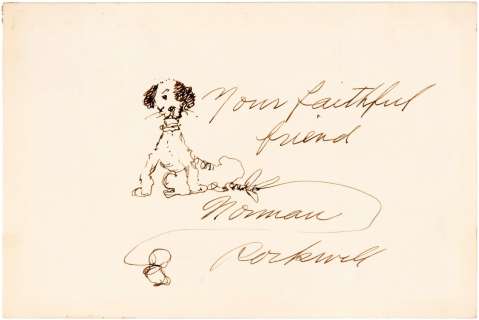 Your faithful
friend
Norman
Rockwell